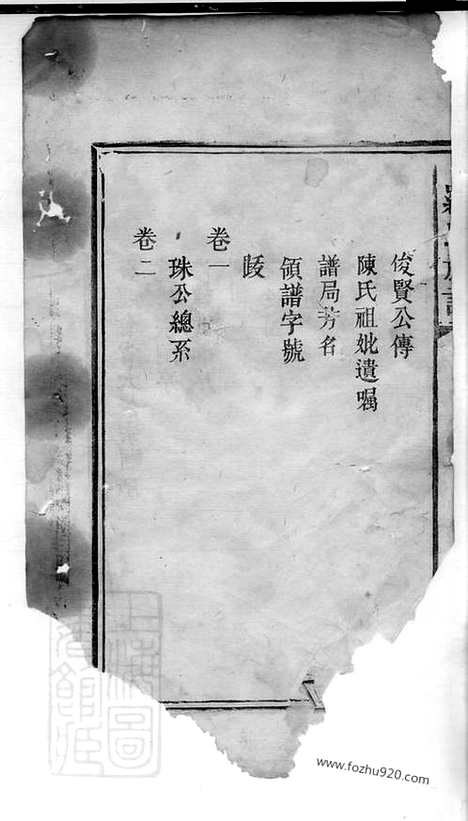 俊賢公傳
陳氏祖妣遺嘱
譜局芳名
領譜字號
跋
卷一
珠公總系
卷二
www.fozhu920.com